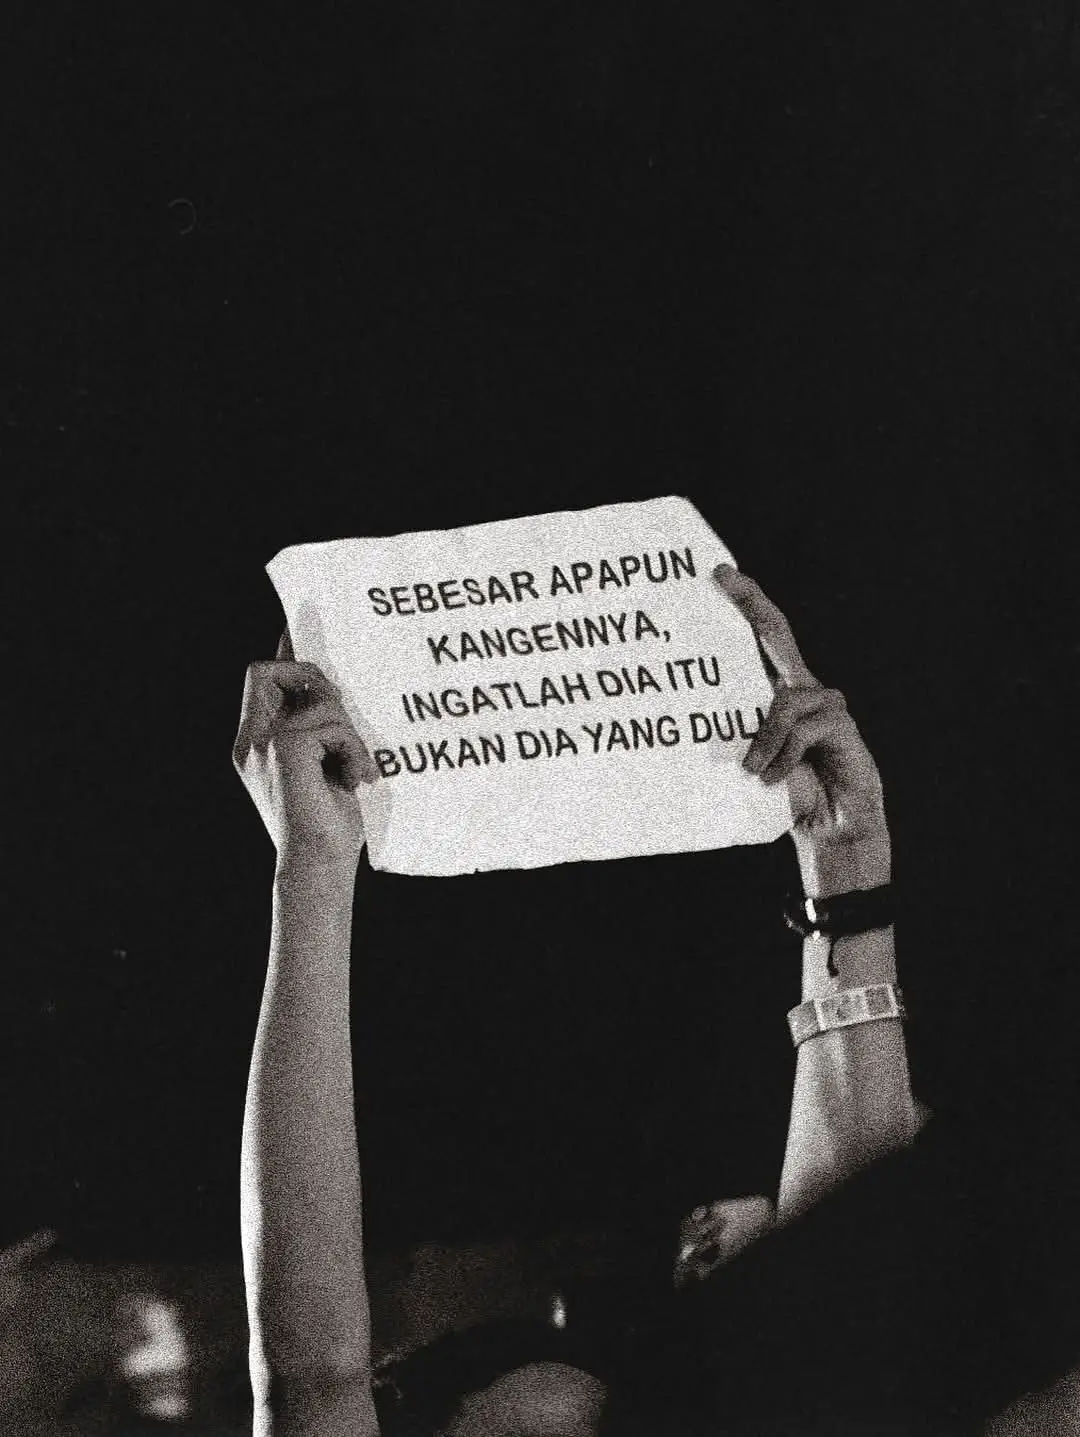 SEBESAR APAPUN
KANGENNYA,
INGATLAH DIA ITU
BUKAN DIA YANG DULU